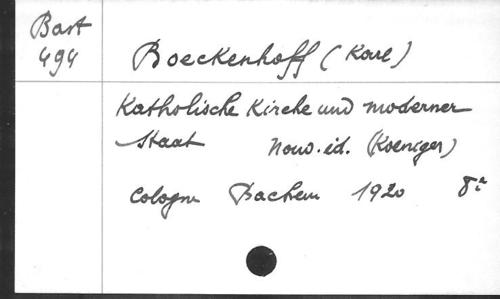 Bart
494
Boeckenhoff (Karl)
Katholische Kirche und moderner
Staat Nouv. éd. (Koeniger)
Cologne Bachem 1920 8º